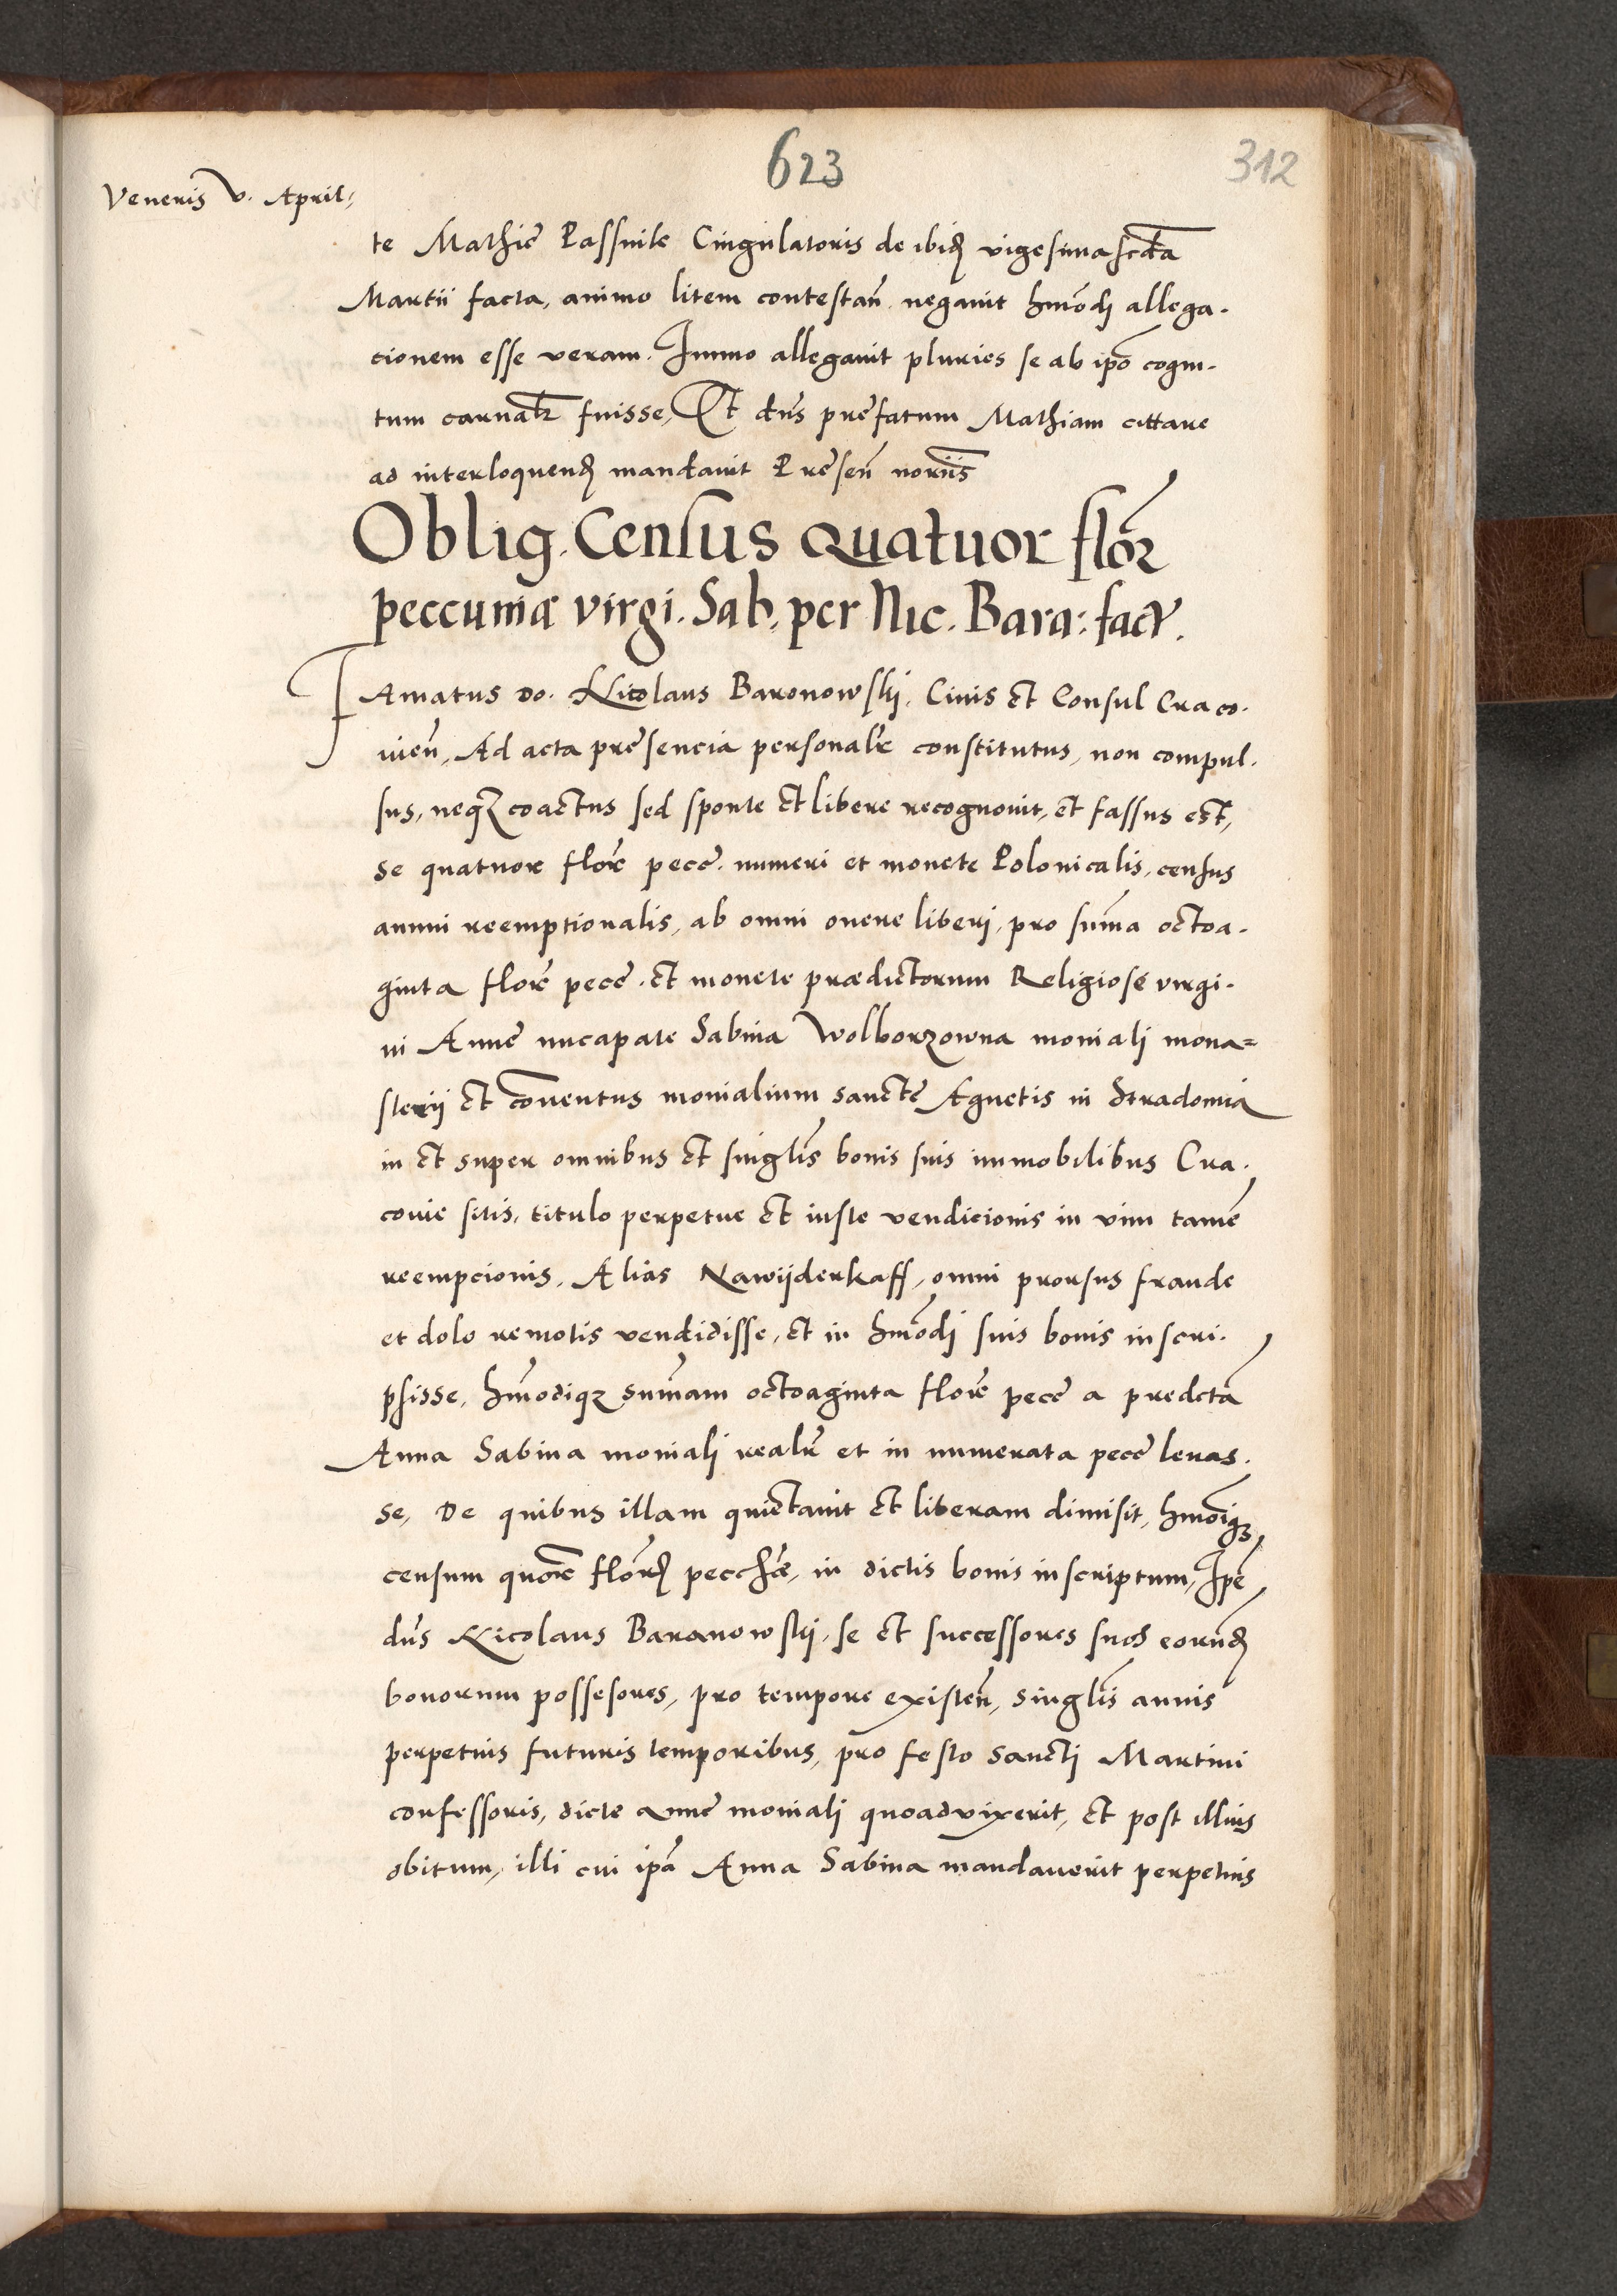 623
312
Veneris v. April
te Mathie Passnik Cingulatoris de ibid vigesima scda
Martii facta, animo litem contestan. negavit hmodi allega.
cionem esse veram. Immo allegavit pluries se ab ipo cogni.
tum carnalr fuisse, Et dns prefatum Mathiam cittare
ad interloquend mandavit Presen noriis
Oblig. Census quatuor flor
peccuniæ virgi. Sab. per Nic. Bara: fact.
Famatus do. Nicolaus Baronowskj. Civis et Consul Craco.
vien, Ad acta presencia personalr constitutus, non compul.
sus, neqz coactus sed sponte et libere recognovit, et fassus est,
se quatuor flor pecce. numeri et monete Polonicalis, census
annui reemptionalis, ab omni onere liberi, pro suma octoa.
ginta flor pece. et monete prædictorum Religiose virgi.
ni Anne nucapate Sabina Wolborzowna moniali mona=
sterij et conventus monialium sancte Agnetis in Stradomia
in et super omnibus et singlis bonis suis immobilibus Cra.
covie sitis, titulo perpetue et iuste vendicionis in vim tame
reempcionis, Alias Nawijderkaff, omni prorsus fraude
et dolo remotis vendidisse, et in hmodj suis bonis inscri.
psisse, hmodiqz sumam octoaginta flor pece a predcta
Anna Sabina moniali realr et in numerata pece levas.
se, De quibus illam quietavit et liberam dimisit, hmoiqz
censum quor flor pecc, in dictis bonis inscriptum, Ipe
dns Nicolaus Baranowskj, se et successores suos eorund
bonorum possesores, pro tempore existen, singlis annis
perpetuis futuris temporibus, pro festo Sancti Martini
confessoris, dicte Anne moniali quoadvixerit, et post illius
obitum, illi cui ipa Anna Sabina mandaverit perpetuis